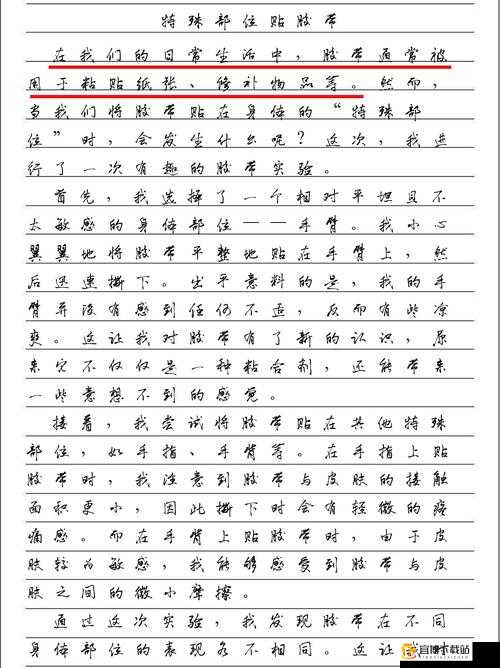 特殊部位贴胶带
在我们的日常生活中，胶带通常被
用于粘贴纸张、修补物品等。然而，
当我们将胶带贴在身体的“特殊部
位”时，会发生什么呢？这次，我进
行了一次有趣的胶带实验。
首先，我选择了一个相对平坦且不
太敏感的身体部位——手臂。我小心
翼翼地将胶带平整地贴在手臂上，然
后迅速撕下。出乎意料的是，我的手
臂并没有感到任何不适，反而有些凉
爽。这让我对胶带有了新的认识，原
来它不仅仅是一种粘合剂，还能带来
一些意想不到的感觉。
接着，我尝试将胶带贴在其他特殊
部位，如手指、手臂等。在手指上贴
胶带时，我注意到胶带与皮肤的接触
面积更小，因此撕下时会有轻微的疼
痛感。而在手臂上贴胶带时，由于皮
肤较为敏感，我能够感受到胶带与皮
肤之间的微小摩擦。
通过这次实验，我发现胶带在不同
身体部位的表现各不相同。这让我
宜博下载站